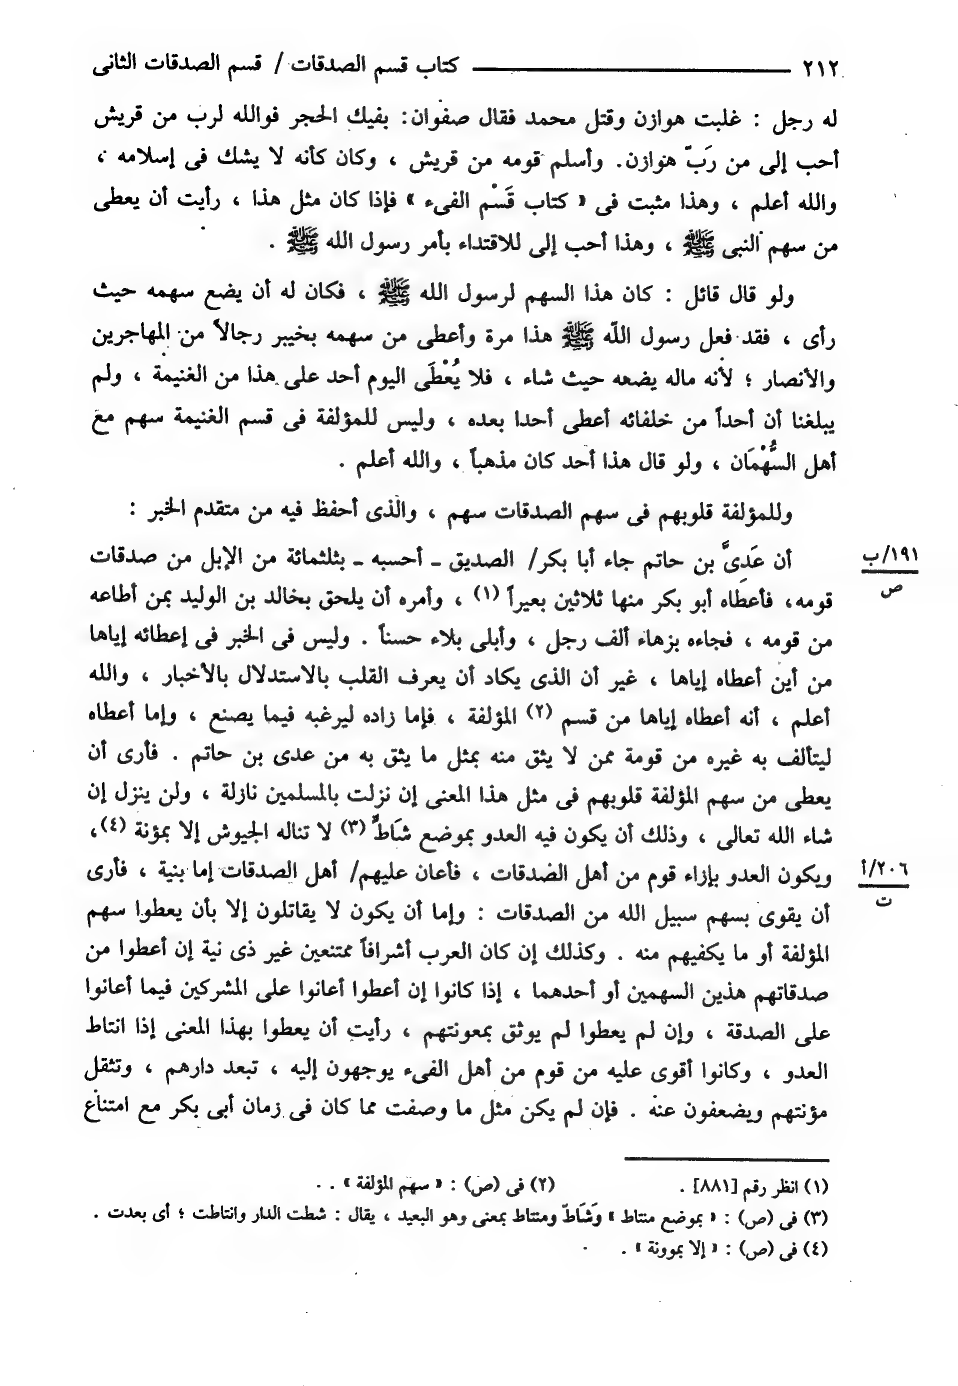 ٢١٢ ــــــــــــ كتاب قسم الصدقات / قسم الصدقات الثانى
له رجل : غلبت هوازن وقتل محمد فقال صفوان: بفيك الحجر فوالله لرب من قريش
أحب إلى من رَبّ هوازن. وأسلم قومه من قريش ، وكان كأنه لا يشك فى إسلامه ،
والله أعلم ، وهذا مثبت فى « كتاب قَسْم الفىء » فإذا كان مثل هذا ، رأيت أن يعطى
من سهم النبى ﷺ ، وهذا أحب إلى للاقتداء بأمر رسول الله ﷺ .
ولو قال قائل : كان هذا السهم لرسول الله ﷺ ، فكان له أن يضع سهمه حيث
رأى ، فقد فعل رسول الله ﷺ هذا مرة وأعطى من سهمه بخيبر رجالاً من المهاجرين
والأنصار ؛ لأنه ماله يضعه حيث شاء ، فلا يُعْطَى اليوم أحد على هذا من الغنيمة ، ولم
يبلغنا أن أحداً من خلفائه أعطى أحدا بعده ، وليس للمؤلفة فى قسم الغنيمة سهم مع
أهل السُّهْمَان ، ولو قال هذا أحد كان مذهباً ، والله أعلم .
وللمؤلفة قلوبهم فى سهم الصدقات سهم ، والذى أحفظ فيه من متقدم الخبر :
أن عَدِىَّ بن حاتم جاء أبا بكر/ الصديق ـ أحسبه ـ بثلثمائة من الإبل من صدقات
١٩١/ب
ص
قومه، فأعطاه أبو بكر منها ثلاثين بعيراً (١) ، وأمره أن يلحق بخالد بن الوليد بمن أطاعه
من قومه ، فجاءه بزهاء ألف رجل ، وأبلى بلاء حسناً . وليس فى الخبر فى إعطائه إياها
من أين أعطاه إياها ، غير أن الذى يكاد أن يعرف القلب بالاستدلال بالأخبار ، والله
أعلم ، أنه أعطاه إياها من قسم (٢) المؤلفة ، فإما زاده ليرغبه فيما يصنع ، وإما أعطاه
ليتألف به غيره من قومة ممن لا يثق منه بمثل ما يثق به من عدى بن حاتم . فأرى أن
يعطى من سهم المؤلفة قلوبهم فى مثل هذا المعنى إن نزلت بالمسلمين نازلة ، ولن ينزل إن
شاء الله تعالى ، وذلك أن يكون فيه العدو بموضع شَاطٌّ (٣) لا تناله الجيوش إلا بمؤنة (٤)،
ويكون العدو بإزاء قوم من أهل الصدقات ، فأعان عليهم/ أهل الصدقات إما بنية ، فأرى
٢٠٦/أ
ت
أن يقوى بسهم سبيل الله من الصدقات : وإما أن يكون لا يقاتلون إلا بأن يعطوا سهم
المؤلفة أو ما يكفيهم منه . وكذلك إن كان العرب أشرافاً ممتنعين غير ذى نية إن أعطوا من
صدقاتهم هذين السهمين أو أحدهما ، إذا كانوا إن أعطوا أعانوا على المشركين فيما أعانوا
على الصدقة ، وإن لم يعطوا لم يوثق بمعونتهم ، رأيت أن يعطوا بهذا المعنى إذا انتاط
العدو ، وكانوا أقوى عليه من قوم من أهل الفىء يوجهون إليه ، تبعد دارهم ، وتثقل
مؤنتهم ويضعفون عنه . فإن لم يكن مثل ما وصفت مما كان فى زمان أبى بكر مع امتناع
(١) انظر رقم [٨٨١] . (٢) فى (ص) : « سهم المؤلفة » .
(٣) فى (ص) : « بموضع منتاط » وَشَاطّ ومنتاط بمعنى وهو البعيد ، يقال : شطت الدار وانتاطت ؛ أى بعدت .
(٤) فى (ص) : « إلا بموونة » .